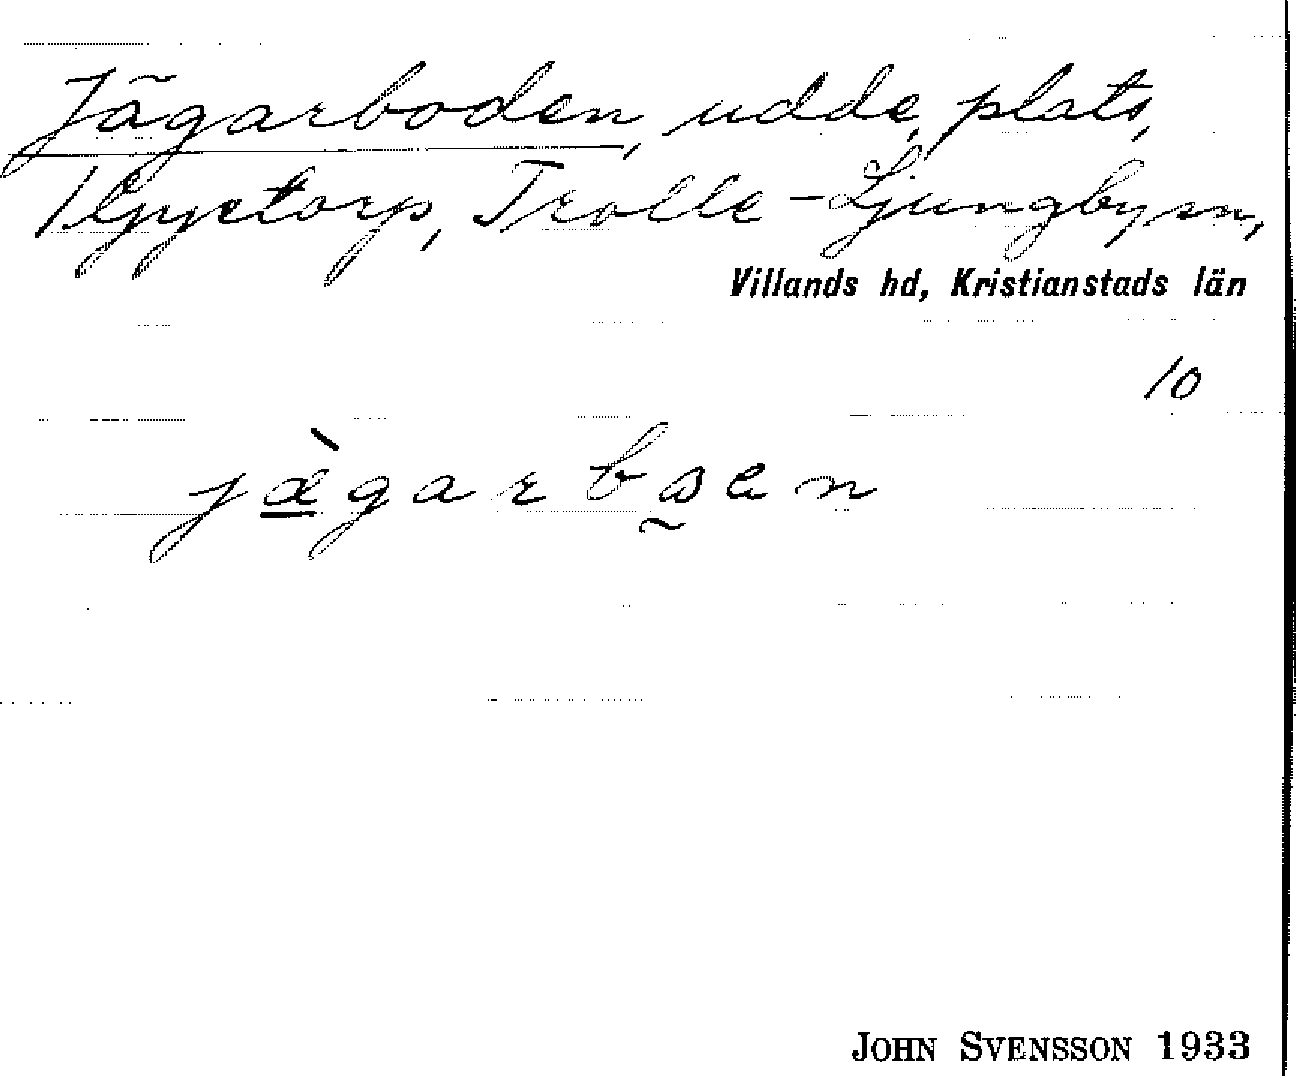 Jägarboden, udde, plats,
Trolle-Ljungby sn,
Villands hd, Kristianstads län
10
JOHN SVENSSON 1933